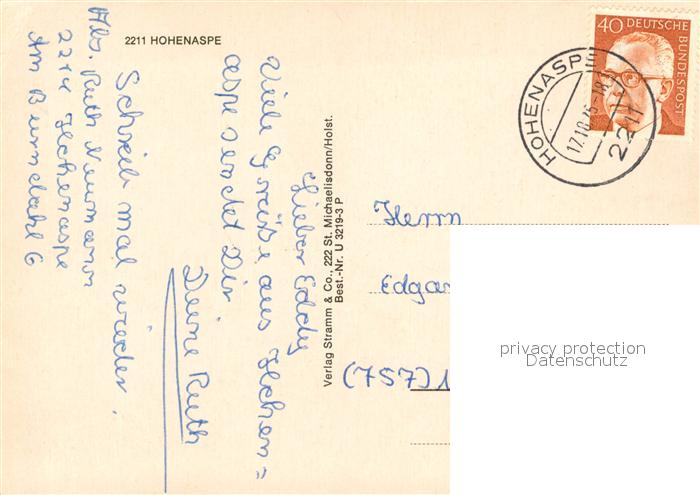 2211 HOHENASPE
Abs. Ruth Neumann
2211 Hohenaspe
Am
Lieber Eddy
Viele Grüße aus Hohen=
aspe sendet Dir
Deine Ruth
Schreib mal wieder.
Verlag Stramm & Co., 222 St. Michaelisdonn/Holst.
Best.-Nr. U 3219-3 P
40 DEUTSCHE
BUNDESPOST
HOHENASPE
2211
Herrn
Edgar
(757)
privacy protection
Datenschutz